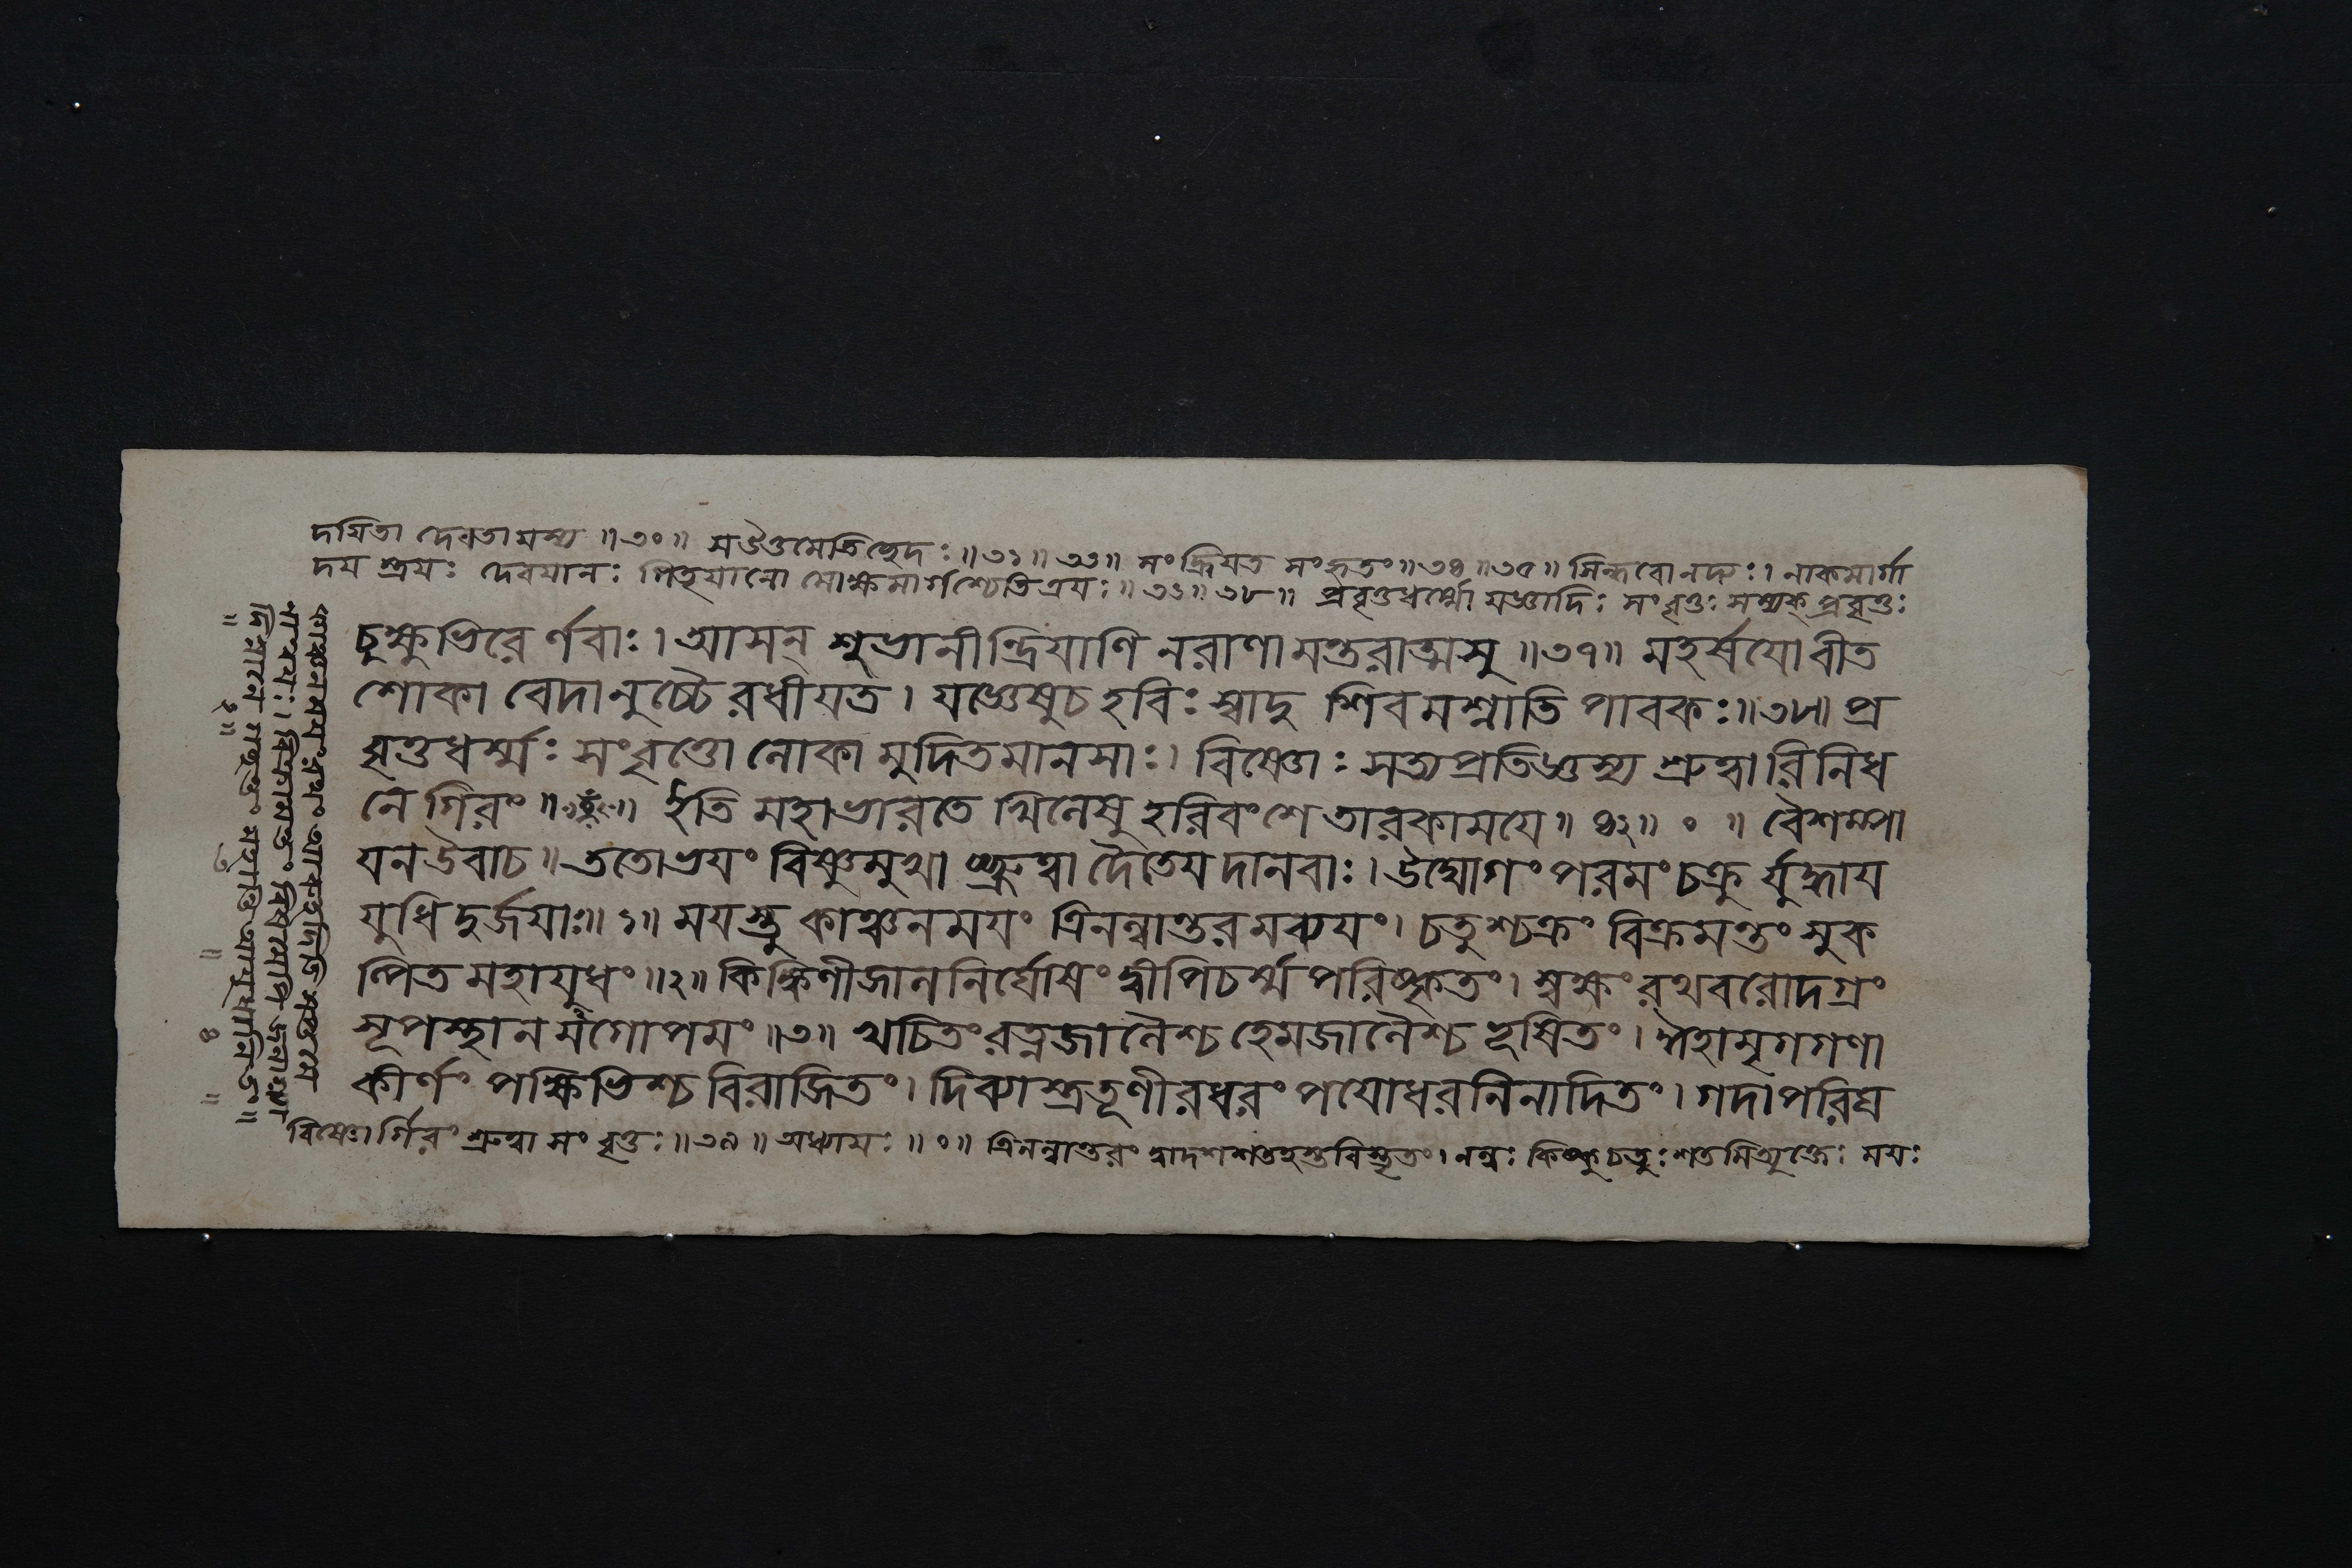 দযিতা দেবতা মস্য ॥৩০॥ মউত্তমেতিচ্ছেদঃ॥৩১॥ ৩৩॥ সংক্রিযত সংহৃতং॥৩৪॥৩৫॥ সিন্ধবোনদ্যঃ। নাকমার্গা
দয স্ত্রযঃ দেবযানঃ পিতৃযানো মোক্ষমার্গশ্চেতিত্রযঃ॥৩৬॥ ৩৮॥ প্রবৃত্তধর্ম্মো যজ্ঞাদিঃ সংবৃত্তঃ সম্যক্ প্রবৃত্তঃ
চুক্ষুভিরের্ণবাঃ। আসন্ শুভানীন্দ্রিযাণি নরাণামন্তরাত্মসু॥৩৭॥ মহর্ষযোবীত
শোকা বেদানুচ্চৈরধীযত। যজ্ঞেষুচ হবিঃ স্বাদু শিবমশ্নাতি পাবকঃ॥৩৮॥ প্র
বৃত্তধর্ম্মঃ সংবৃত্তো লোকা মুদিতমানসাঃ। বিষ্ণোঃ সত্যপ্রতিজ্ঞস্য শ্রুত্বারিনিধ
নে গিরং॥ ॥ ইতি মহাভারতে খিলেষু হরিবংশে তারকাময়ে॥ ৪২॥ ০ ॥ বৈশম্পা
যন উবাচ॥ ততোভযং বিষ্ণুমুখা চ্ছ্রুত্বা দৈতেয দানবাঃ। উদ্যোগং পরমং চক্রু র্যুদ্ধায
যুধি দুর্জযাঃ॥১॥ মযস্তু কাঞ্চনমযং ত্রিনল্বান্তরমব্যযং। চতুশ্চক্রং বিক্রমন্তং সুক
ল্পিত মহাযুধং॥২॥ কিঙ্কিণীজালনির্ঘোষং দ্বীপিচর্ম্মপরিষ্কৃতং। স্বক্ষং রথবরোদগ্রং
সূপস্থান মগোপমং॥৩॥ খচিতং রত্নজালৈশ্চ হেমজালৈশ্চ ভূষিতং। ঈহামৃগগণা
কীর্ণং পক্ষিভিশ্চ বিরাজিতং। দিব্যাস্ত্রতূণীরধরং পযোধরনিনাদিতং। গদাপরিঘ
বিষ্ণোর্গিরং শ্রুত্বা সংবৃত্তঃ॥৩৯॥ অধ্যাযঃ॥০॥ ত্রিনল্বান্তরং দ্বাদশশতহস্তবিস্তৃতং। নল্বঃ কিষ্কুচতুঃশতমিত্যুক্তেঃ মযঃ
কাঞ্চনমযং রথং